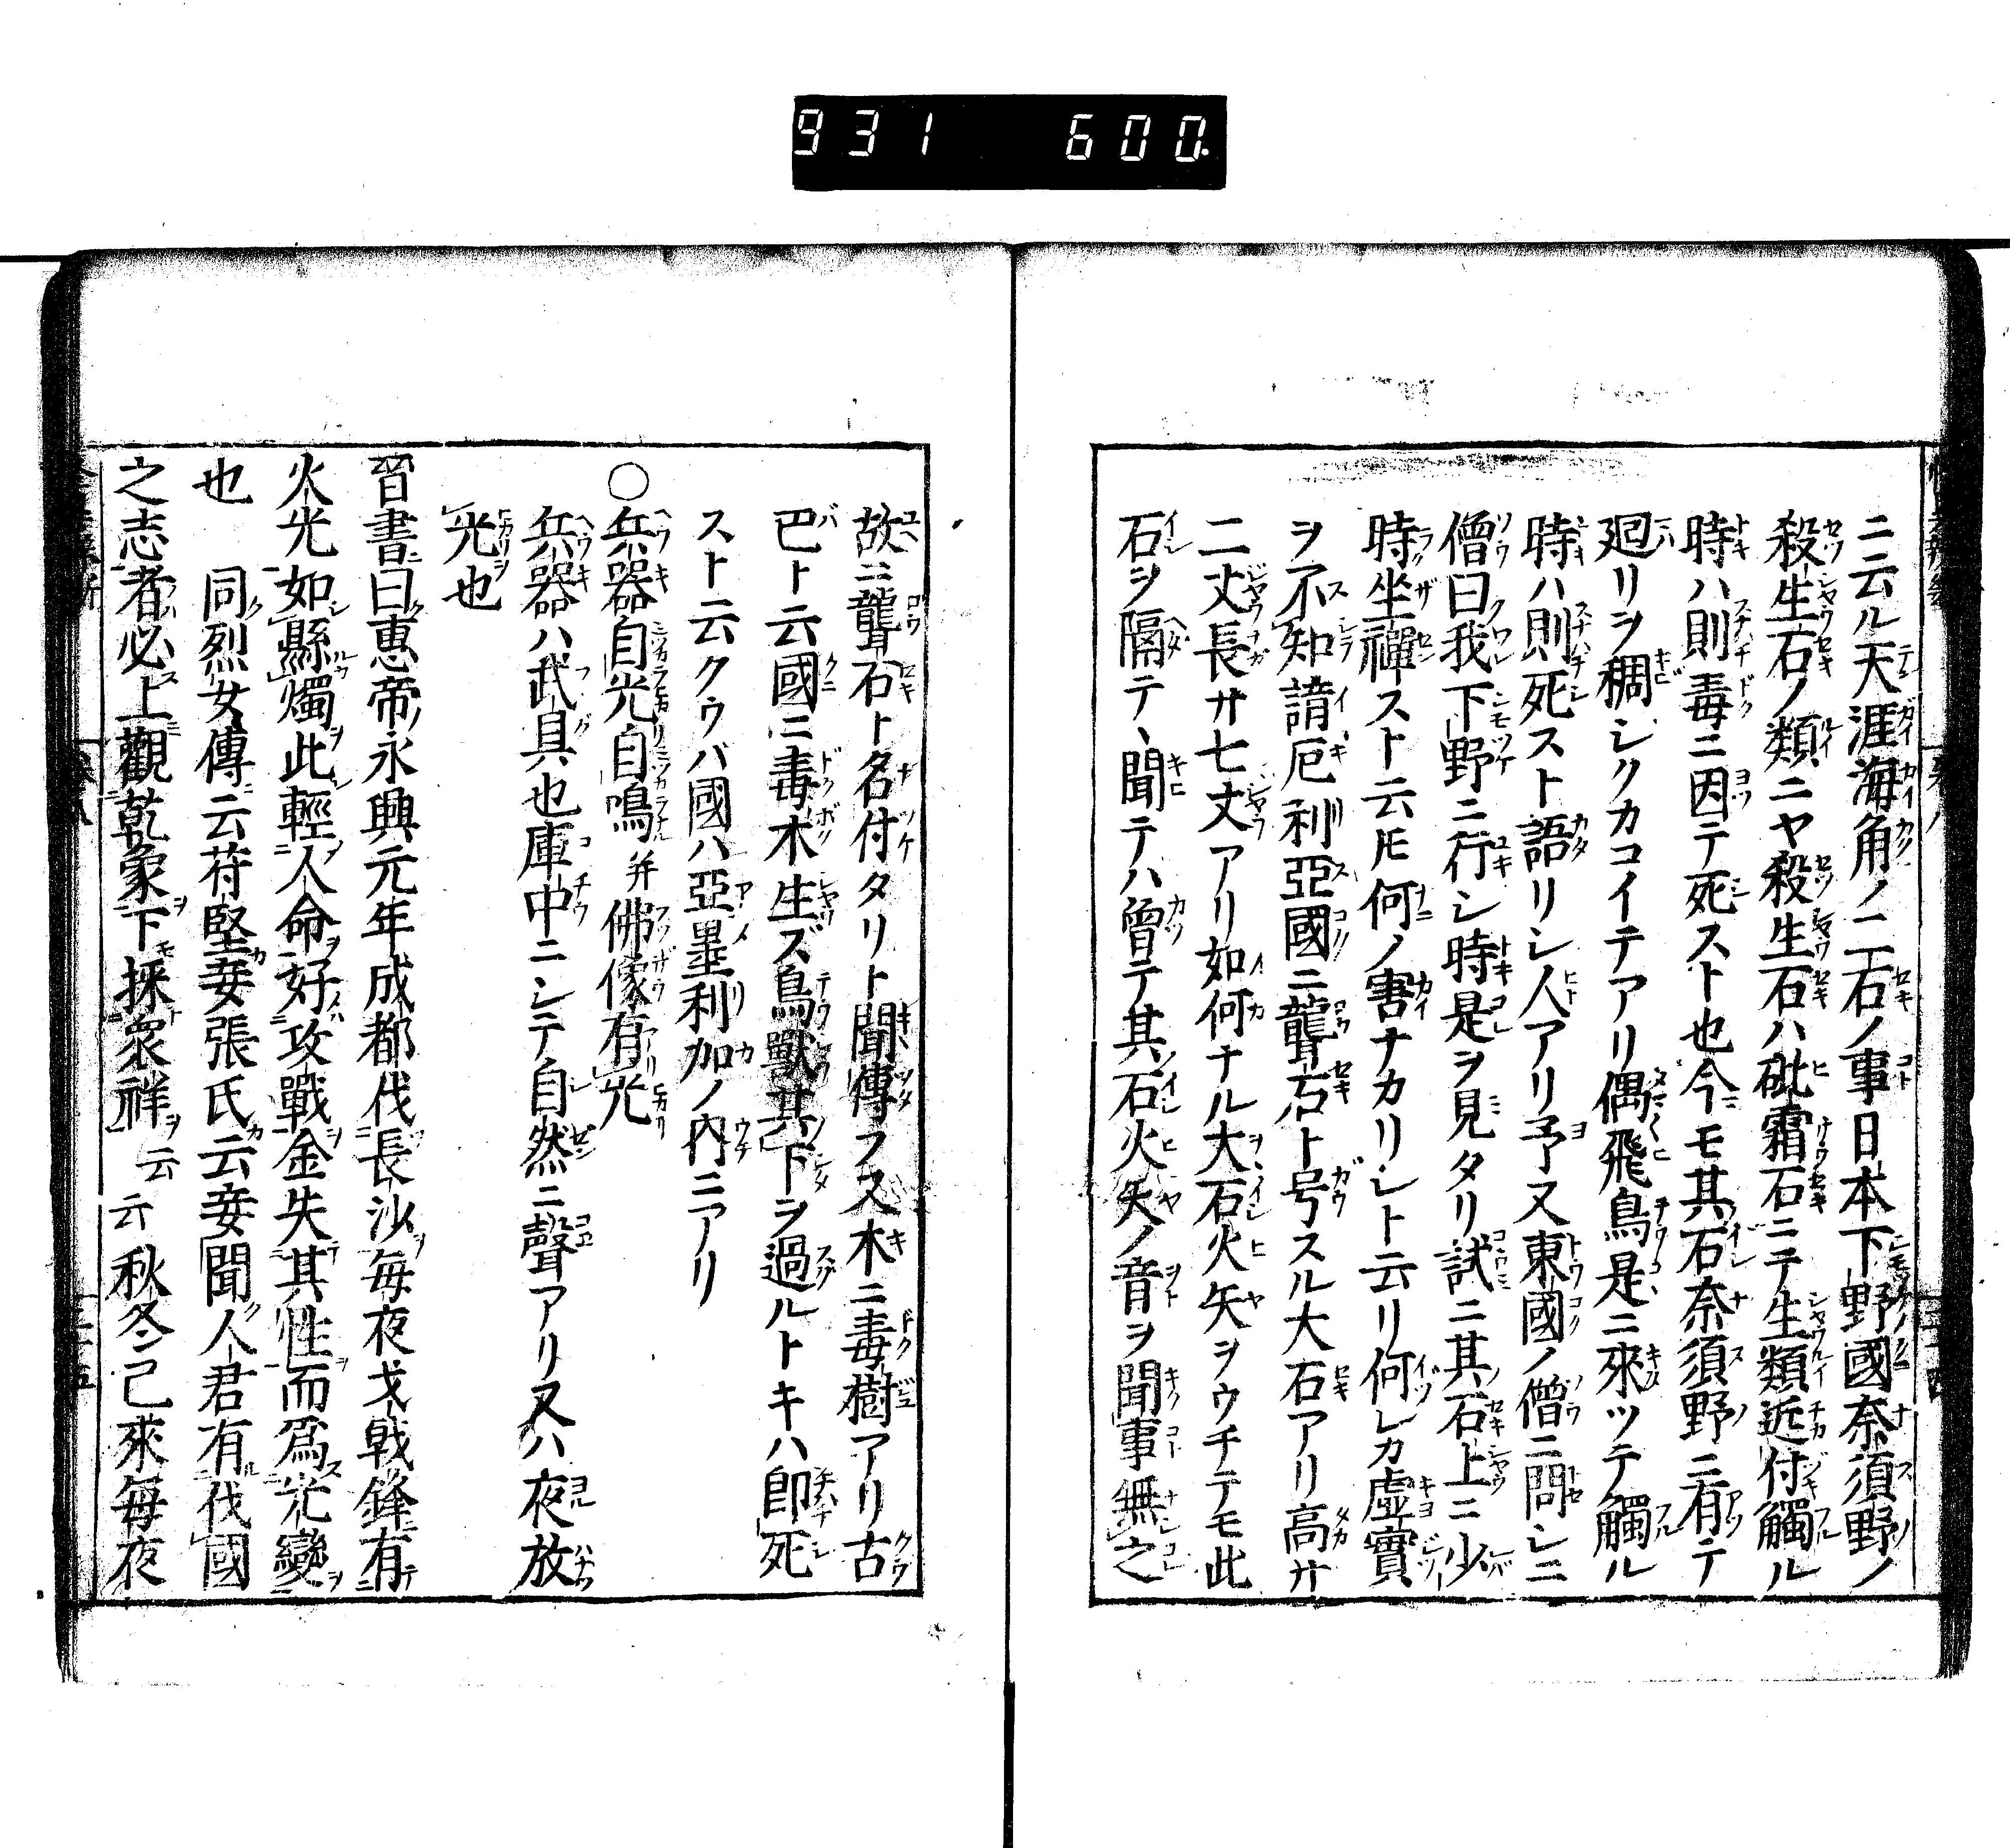 931 600.
ニ云ル天涯海角ノ二石ノ事日本下野國奈須野ノ
殺生石ノ類ニヤ殺生石ハ砒霜石ニテ生類近付觸ル
時ハ則毒ニ因テ死スト也今モ其石奈須野ニ有テ
廻リヲ稠シクカコイテアリ偶飛鳥是ニ來ツテ觸ル
時ハ則死スト語リシ人アリ予又東國ノ僧ニ問シニ
僧曰我下野ニ行シ時是ヲ見タリ試ニ其石上ニ少
時坐禪スト云𪜈何ノ害ナカリシト云リ何レカ虚實
ヲ不知諳厄利亞國ニ聾石ト号スル大石アリ高サ
二丈長サ七丈アリ如何ナル大石火矢ヲウチテモ此
石ヲ隔テ、聞テハ曾テ其石火矢ノ音ヲ聞事無之
故ニ聾石ト名付タリト聞傳フ又木ニ毒樹アリ古
巴ト云國ニ毒木生ズ鳥獸其下ヲ過ルトキハ即死
スト云クウバ國ハ亞墨利加ノ内ニアリ
○兵器自光自鳴并佛像有光
兵器ハ武具也庫中ニシテ自然ニ聲アリ又ハ夜放
光也
晋書曰惠帝ノ永興元年成都伐長沙毎夜戈戟鋒有
火光如縣燭此輕人命好攻戰金失其性而爲光變
也 同烈女傳云苻堅妾張氏云妾聞人君有伐國
之志者必上觀乾象下採衆祥云云秋冬已來毎夜